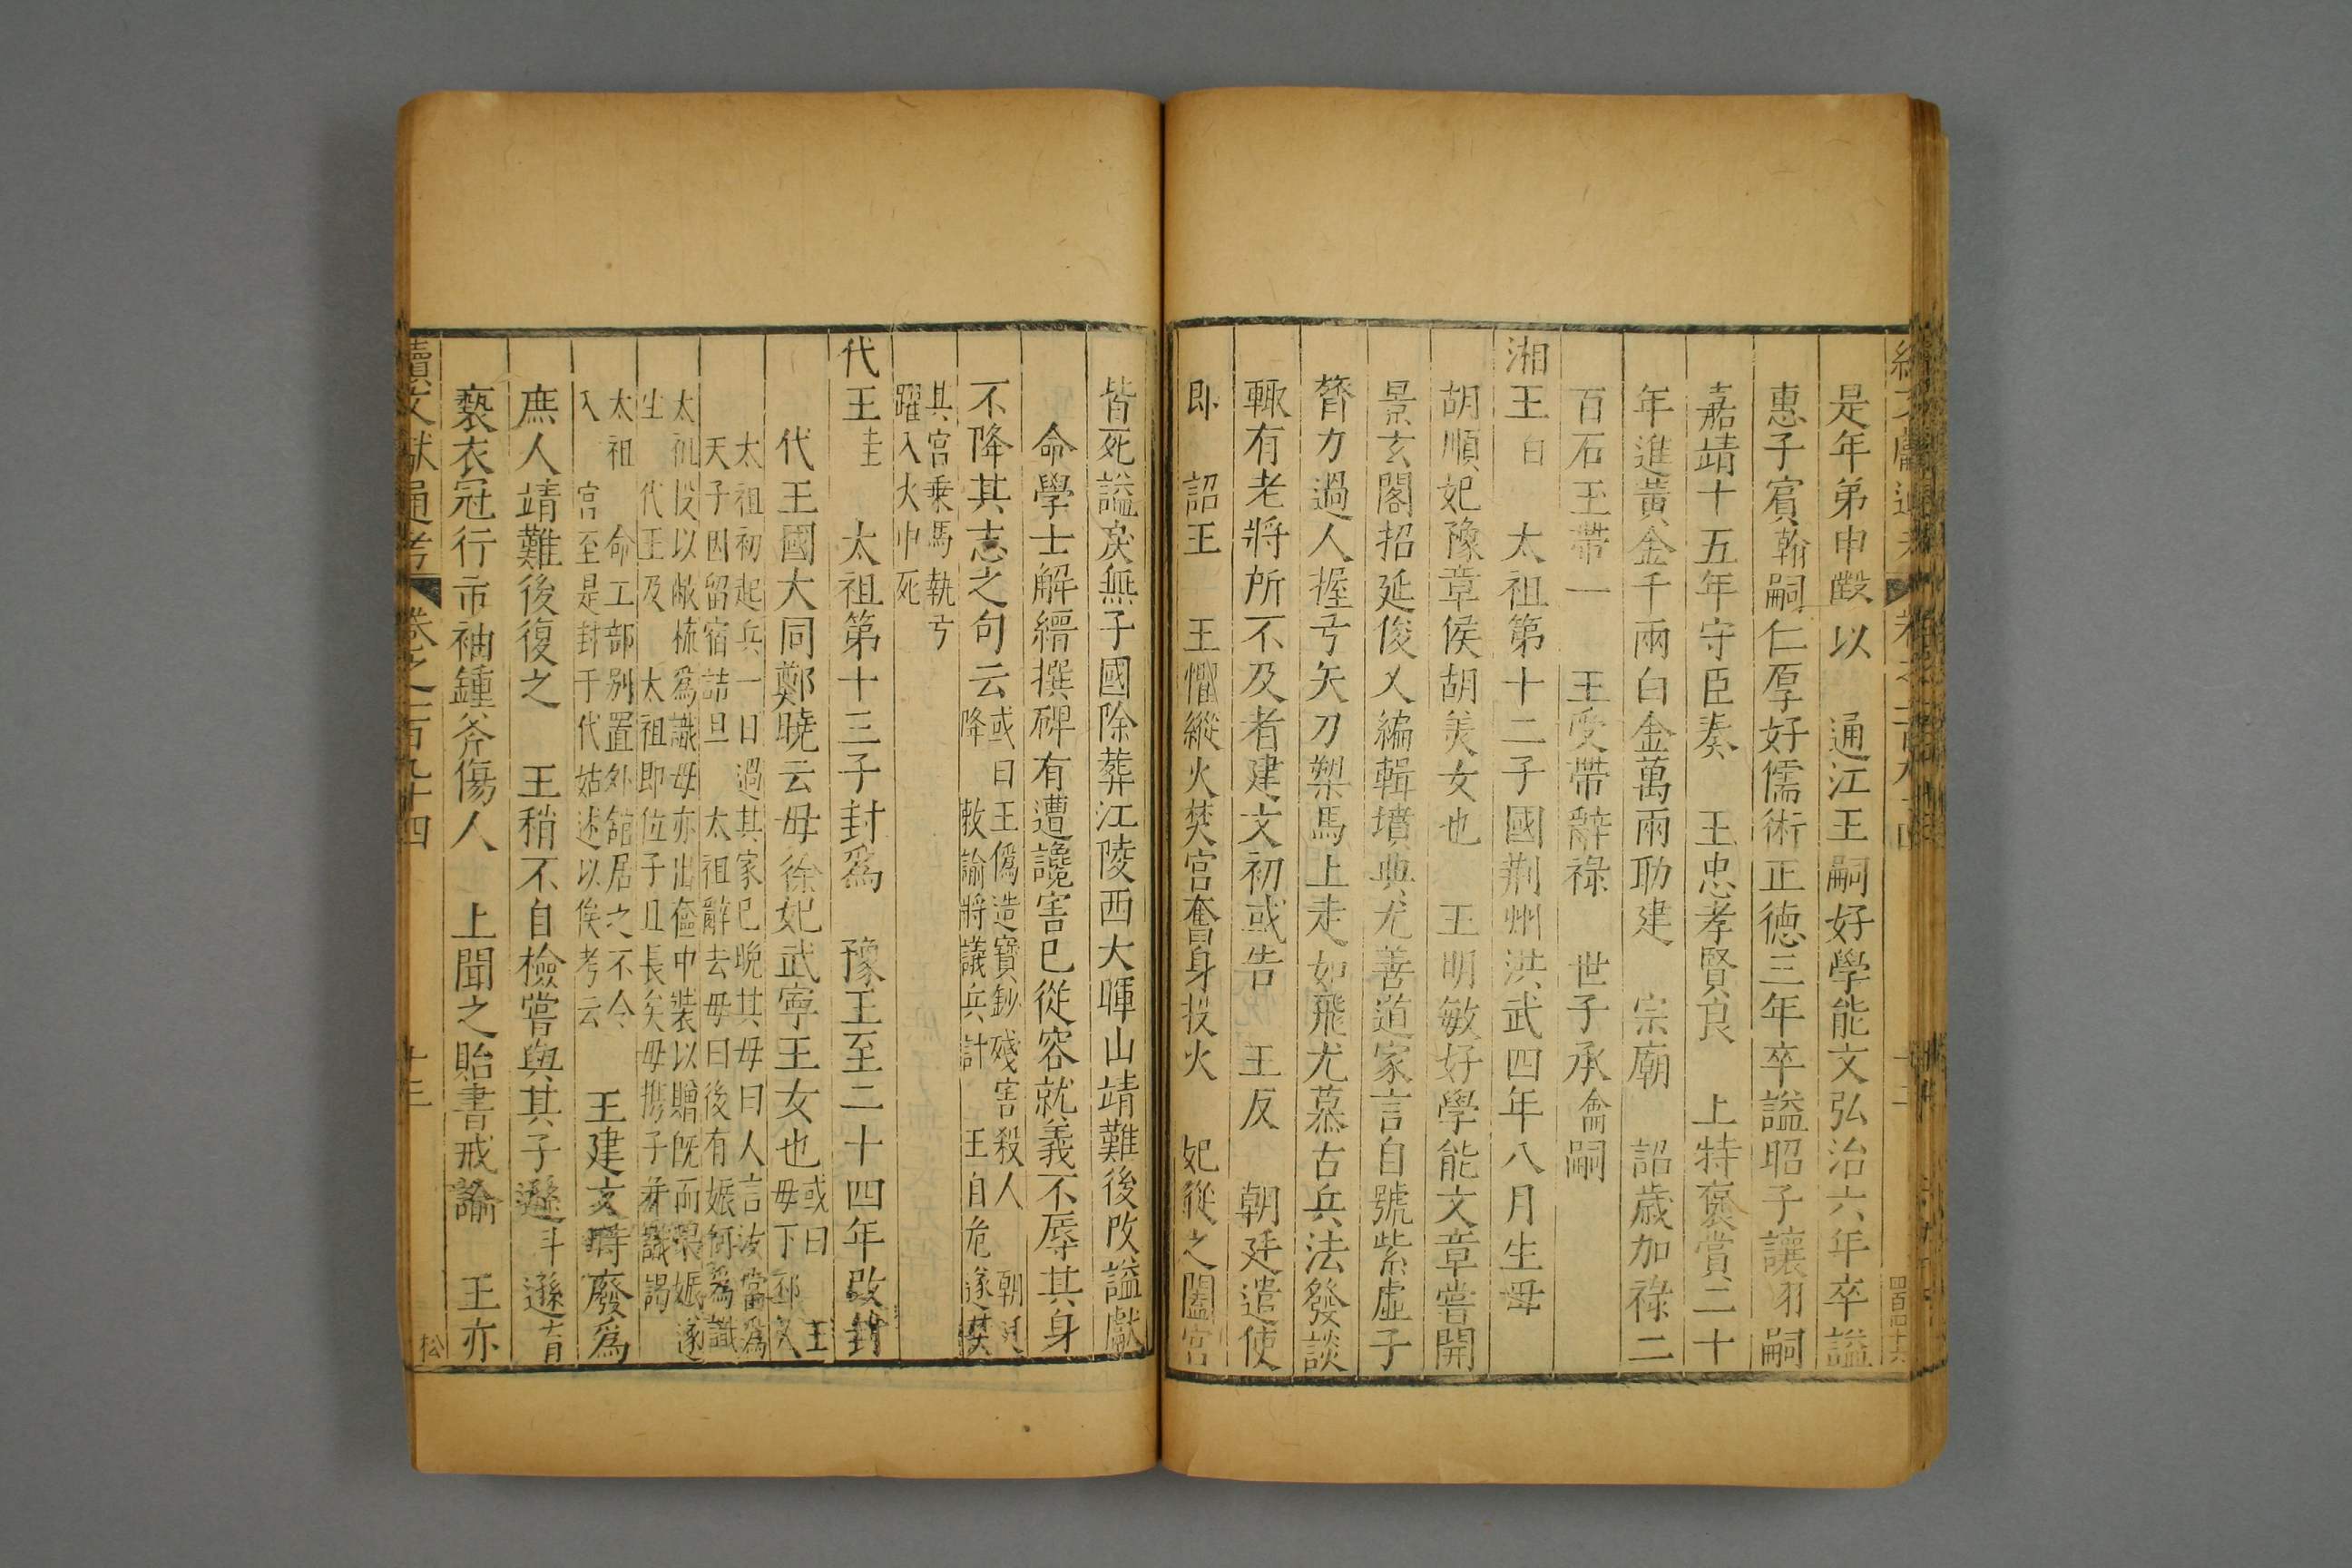 是年弟申鐅以　通江王嗣好學能文弘治六年卒謚
惠子賓翰嗣仁厚好儒術正德三年卒謚昭子讓羽嗣
嘉靖十五年守臣奏　王忠孝賢良　上特褒賞二十
年進黃金千兩白金萬兩助建　宗廟　詔歲加祿二
百石玉帶一　王受帶辭祿　世子承爚嗣
湘王白　太祖第十二子國荆州洪武四年八月生母
胡順妃豫章侯胡美女也　王明敏好學能文章嘗開
景玄閣招延俊乂編輯墳典尤善道家言自號紫虛子
膂力過人握弓矢刀槊馬上走如飛尤慕古兵法發談
輙有老將所不及者建文初或告　王反　朝廷遣使
即　詔王　王慴縱火焚宮奮身投火　妃從之闔宮
皆死謚戾無子國除葬江陵西大暉山靖難後改謚獻
命學士解縉撰碑有遭讒害已從容就義不辱其身
不降其志之句云或曰王僞造寶鈔殘害殺人　朝廷
降　敕諭將議兵討　王自危遂焚
其宮乗馬執弓
躍入火中死
代王圭　太祖第十三子封爲　豫王至二十四年改封
代王國大同鄭曉云母徐妃武寜王女也或曰　王
母下邳人
太祖初起兵一日過其家已晚其母曰人言汝當爲
天子因留宿詰旦　太祖辭去母曰後有娠何爲識
太祖授以敝梳爲識母亦出奩中裝以贈既而果娠遂
生　代王及　太祖即位子且長矣母携子來識謁
太祖　命工部别置外舘居之不令
入　宮至是封于代姑述以俟考云　王建文時廢爲
庶人靖難後復之　王稍不自檢嘗與其子遜炓遜焴
褻衣冠行市袖錘斧傷人　上聞之貽書戒諭　王亦
續文獻通考　卷之一百九十四　十三　松